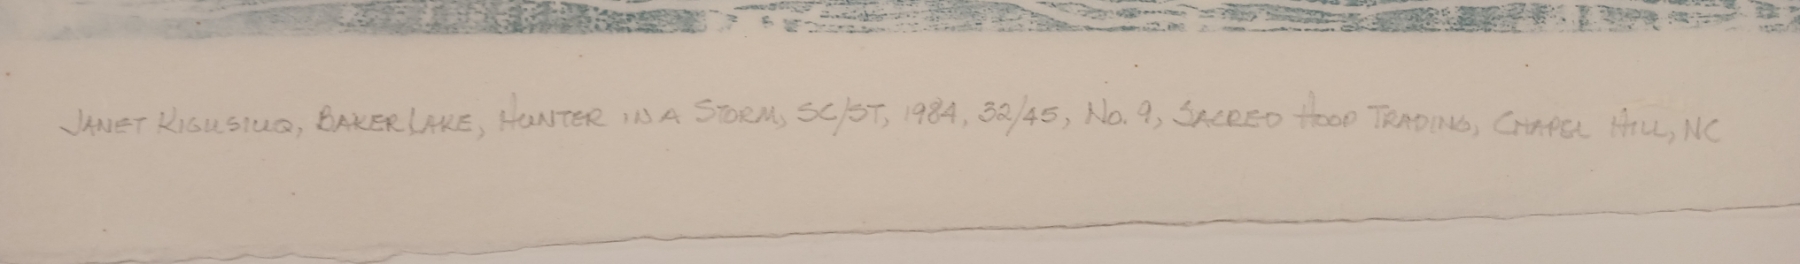 JANET KIGUSIUQ, BAKER LAKE, HUNTER IN A STORM, SC/ST, 1984, 32/45, No. 9, SACRED HOOP TRADING, CHAPEL HILL, NC